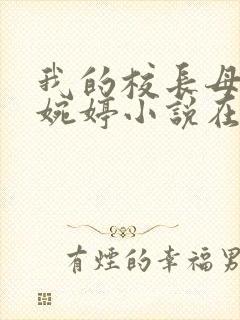 我的校長母
婉婷小說在
有煙的幸福男